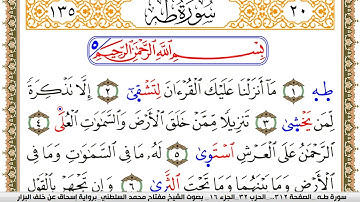 ١٣٥ سُورَةُ طه ٢٠
بِسْمِ اللَّهِ الرَّحْمَٰنِ الرَّحِيمِ
طه ١ مَا أَنزَلْنَا عَلَيْكَ الْقُرْءَانَ لِتَشْقَىٰ ٢ إِلَّا تَذْكِرَةً
لِّمَن يَخْشَىٰ ٣ تَنزِيلًا مِّمَّنْ خَلَقَ الْأَرْضَ وَالسَّمَٰوَٰتِ الْعُلَى ٤
الرَّحْمَٰنُ عَلَى الْعَرْشِ اسْتَوَىٰ ٥ لَهُ مَا فِي السَّمَٰوَٰتِ وَمَا فِي
الْأَرْضِ وَمَا بَيْنَهُمَا وَمَا تَحْتَ الثَّرَىٰ ٦ وَإِن تَجْهَرْ بِالْقَوْلِ
سورة طـه .. الصفحة ٣١٢.. الحزب ٣٢ .الجزء ١٦ .. بصوت الشيخ مفتاح محمد السلطني .. برواية إسحاق عن خلف البزار